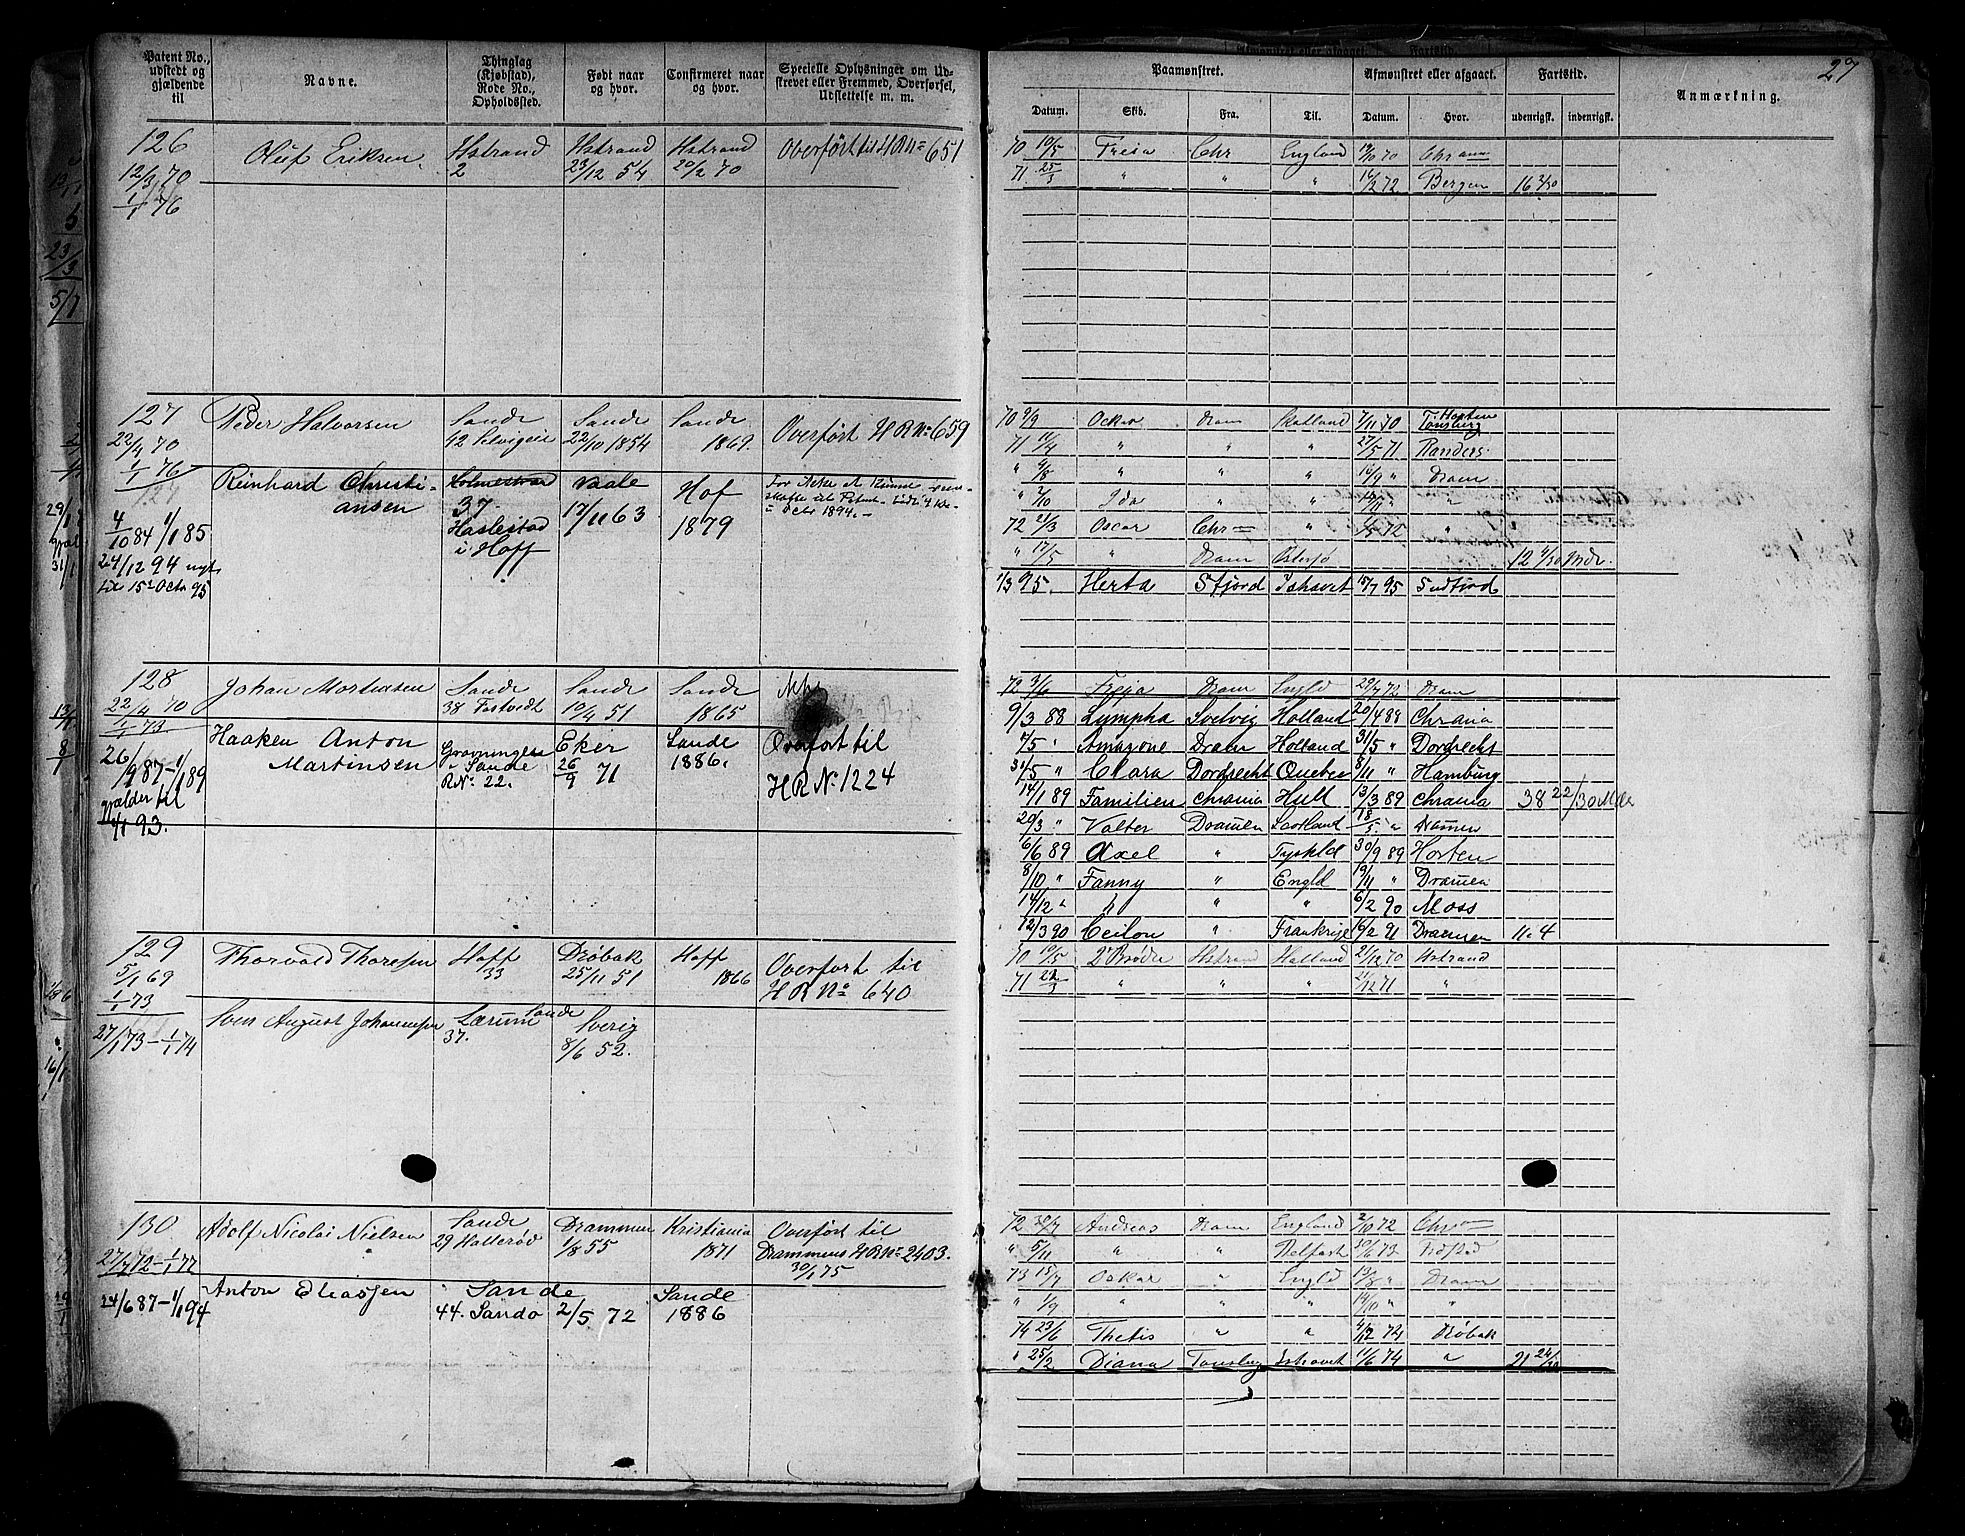 27
Patent No., udstedt og gjældende til
Navne.
Thinglag (Kjøbstad), Rode No., Opholdssted.
Født naar og hvor.
Confirmeret naar og hvor.
Specielle Oplysninger om Udskrevet eller Fremmed, Overførsel, Udslettelse m. m.
Paamønstret.
Afmønstret eller afgaaet.
Fartstid.
Anmærkning.
Datum. Skib. Fra. Til. Datum. Hvor. udenrigsk. indenrigsk.
126 Oluf Eriksen Hstrand Hstrand Hstrand Overført til H R No 651
12/3 70 2 23/12 54 20/2 70
1/1 76
70 10/5 Freia Chr England 19/10 70 Chrania
71 25/3 " " " 16/2 72 Bergen 16 3/30
127 Peder Halvorsen Sande Sande Sande Overført H R No 659
22/4 70 42 Selvigvig 22/10 1854 1869.
1/1 76
Reinhard Christiansen Holmestrand Vaale Hof
37. 17/11 63 1879
4/10 84 1/1 85 Haslestad
i Hoff
24/12 94 nyt
til 15de Octr 95
70 9/9 Oskar Dram Skotland 7/11 70 Horten Tønsberg
71 11/4 " " " 27/5 71 Randers
" 9/8 " " " 16/9 " Dram
" 2/10 Ida " " "
72 21/3 Oscar Chr " 72 "
" 17/5 " Dram Østersø 12 4/30 Mdr.
1/3 95. Herta Sfjord Ishavet 15/7 95 Sndfjord
128 Johan Mortensen Sande Sande Sande
22/4 70 38 10/4 51 1865
1/1 73
Haaken Anton Martinsen Gravningen i Sande R No. 22. Eker 26/9 71 Sande 1886. Overført til H R No. 1224
26/9 87 - 1/1 89
gjælder til
1/1 93.
72 3/6 Freja Dram Engld 29/7 72 Dram
9/3 88 Lympha Svelvig Holland 20/4 88 Chrania
4/5 " Amazone Dram Holland 31/5 " Dordrecht
31/5 " Clara Dordrecht Quebec 8/11 " Hamburg
14/1 89 Familien Chrania Hull 13/3 89 Chrania 38 22/30 Mdr
29/3 " Valter Dramen Scotland 18/5 " Dramen
6/6 89 Axel " Tyskld 30/9 89 Horten
8/10 " Fanny " Engld 19/11 " Dramen
14/12 " " " " 6/2 90 Moss
12/3 90 Ceilon " Frankrige 16/2 91 Dramen 11. 4
129 Thorvald Thoresen Hoff Drøbak Hoff Overført til
5/1 69 33 25/11 51 1866 H R No 640
1/1 73
Sven August Johannesen Lærum Sande Sverig
27/1 73 - 1/1 74 37. 8/6 52.
70 10/5 2de Brødre Hstrand Holland 21/12 70 Hstrand
71 22/3 " " " 21/12 71 "
130 Adolf Nicolai Nielsen Sande Drammen Kristiania Overført til
27/7 72 - 1/1 77 29 Hallerød 1/8 55 1871 Drammens H R No 2403.
30/1 75
Anton Eliassen Sande Sande
24/6 87 - 1/1 94 44. Sando 2/5 72 1886
72 30/7 Andreas Dram England 2/10 72 Chra
" 5/11 " " Belfast 20/6 73 Frdstad
73 15/7 Oskar " Engld 13/8 " Dram
" 1/9 " " " 14/10 " "
74 23/6 Thetis " " 4/12 74 Drøbak
" 25/2 Diana Tønsberg Ishavet 11/6 74 " 21 24/30